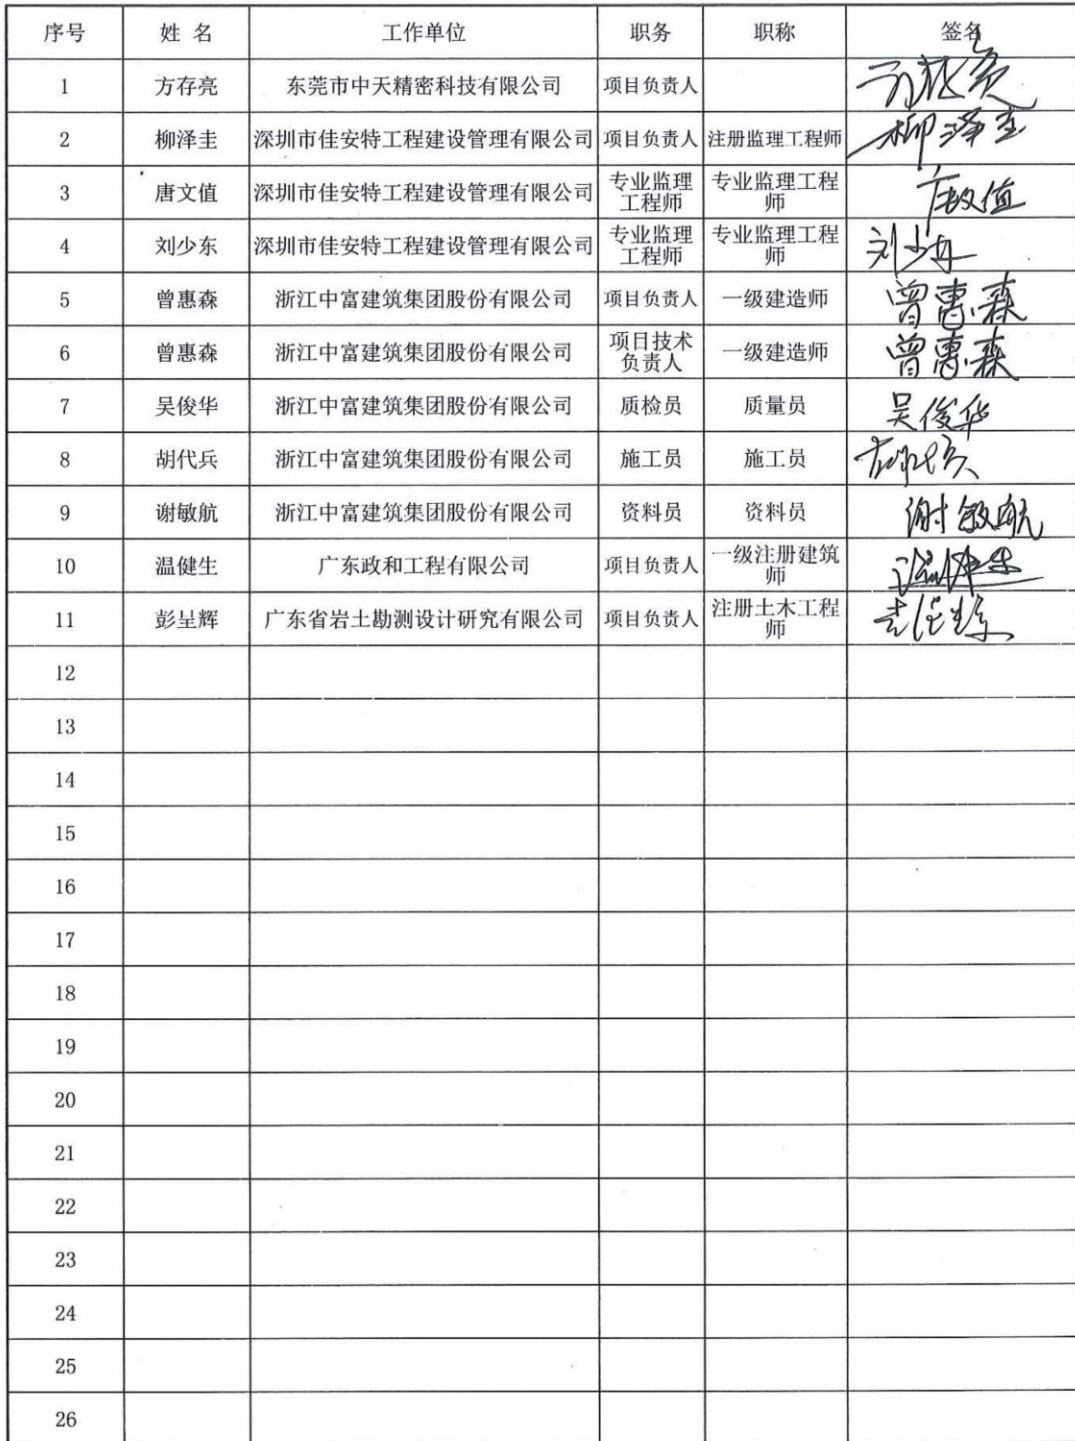 序号 姓 名 工作单位 职务 职称 签名
1 方存亮 东莞市中天精密科技有限公司 项目负责人
2 柳泽圭 深圳市佳安特工程建设管理有限公司 项目负责人 注册监理工程师 柳泽圭
3 唐文值 深圳市佳安特工程建设管理有限公司 专业监理工程师 专业监理工程师
4 刘少东 深圳市佳安特工程建设管理有限公司 专业监理工程师 专业监理工程师 刘少东
5 曾惠森 浙江中富建筑集团股份有限公司 项目负责人 一级建造师 曾惠森
6 曾惠森 浙江中富建筑集团股份有限公司 项目技术负责人 一级建造师 曾惠森
7 吴俊华 浙江中富建筑集团股份有限公司 质检员 质量员 吴俊华
8 胡代兵 浙江中富建筑集团股份有限公司 施工员 施工员
9 谢敏航 浙江中富建筑集团股份有限公司 资料员 资料员 谢敏航
10 温健生 广东政和工程有限公司 项目负责人 一级注册建筑师 温健生
11 彭呈辉 广东省岩土勘测设计研究有限公司 项目负责人 注册土木工程师
12
13
14
15
16
17
18
19
20
21
22
23
24
25
26